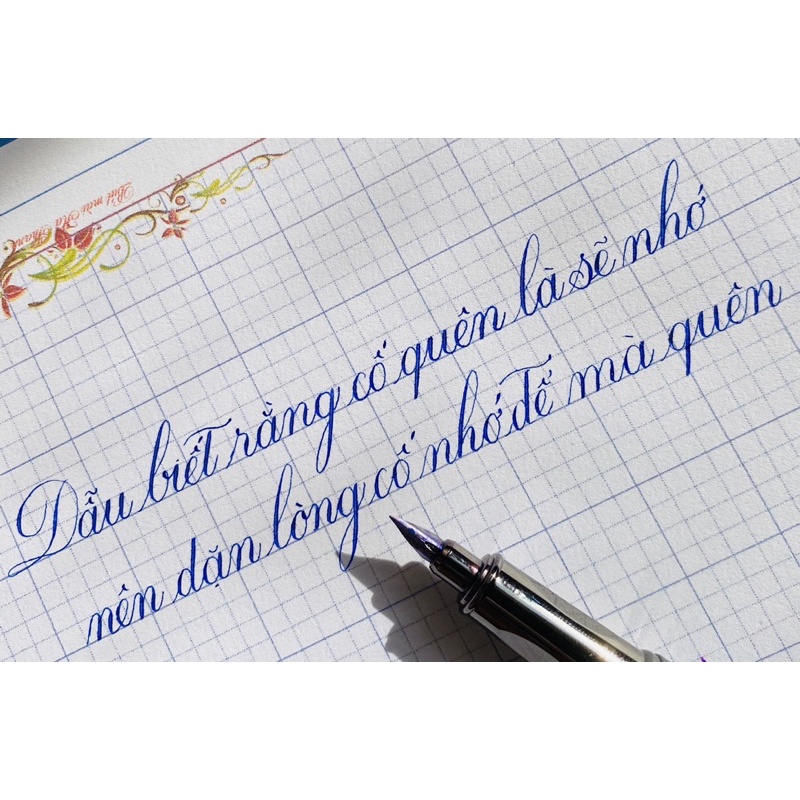 Bút mài Hà Thành
Dẫu biết rằng cố quên là sẽ nhớ
nên dặn lòng cố nhớ để mà quên